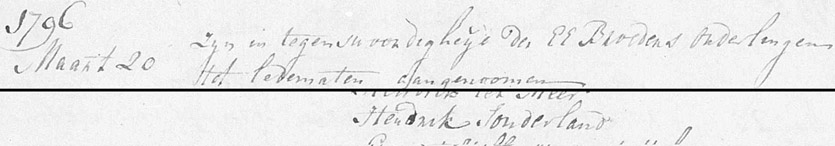 1796
Maart 20
Zyn in tegenswoordigheyt der EE Broeders Onderlingen
Tot ledematen Aangenoomen
Hendrik Sonderland